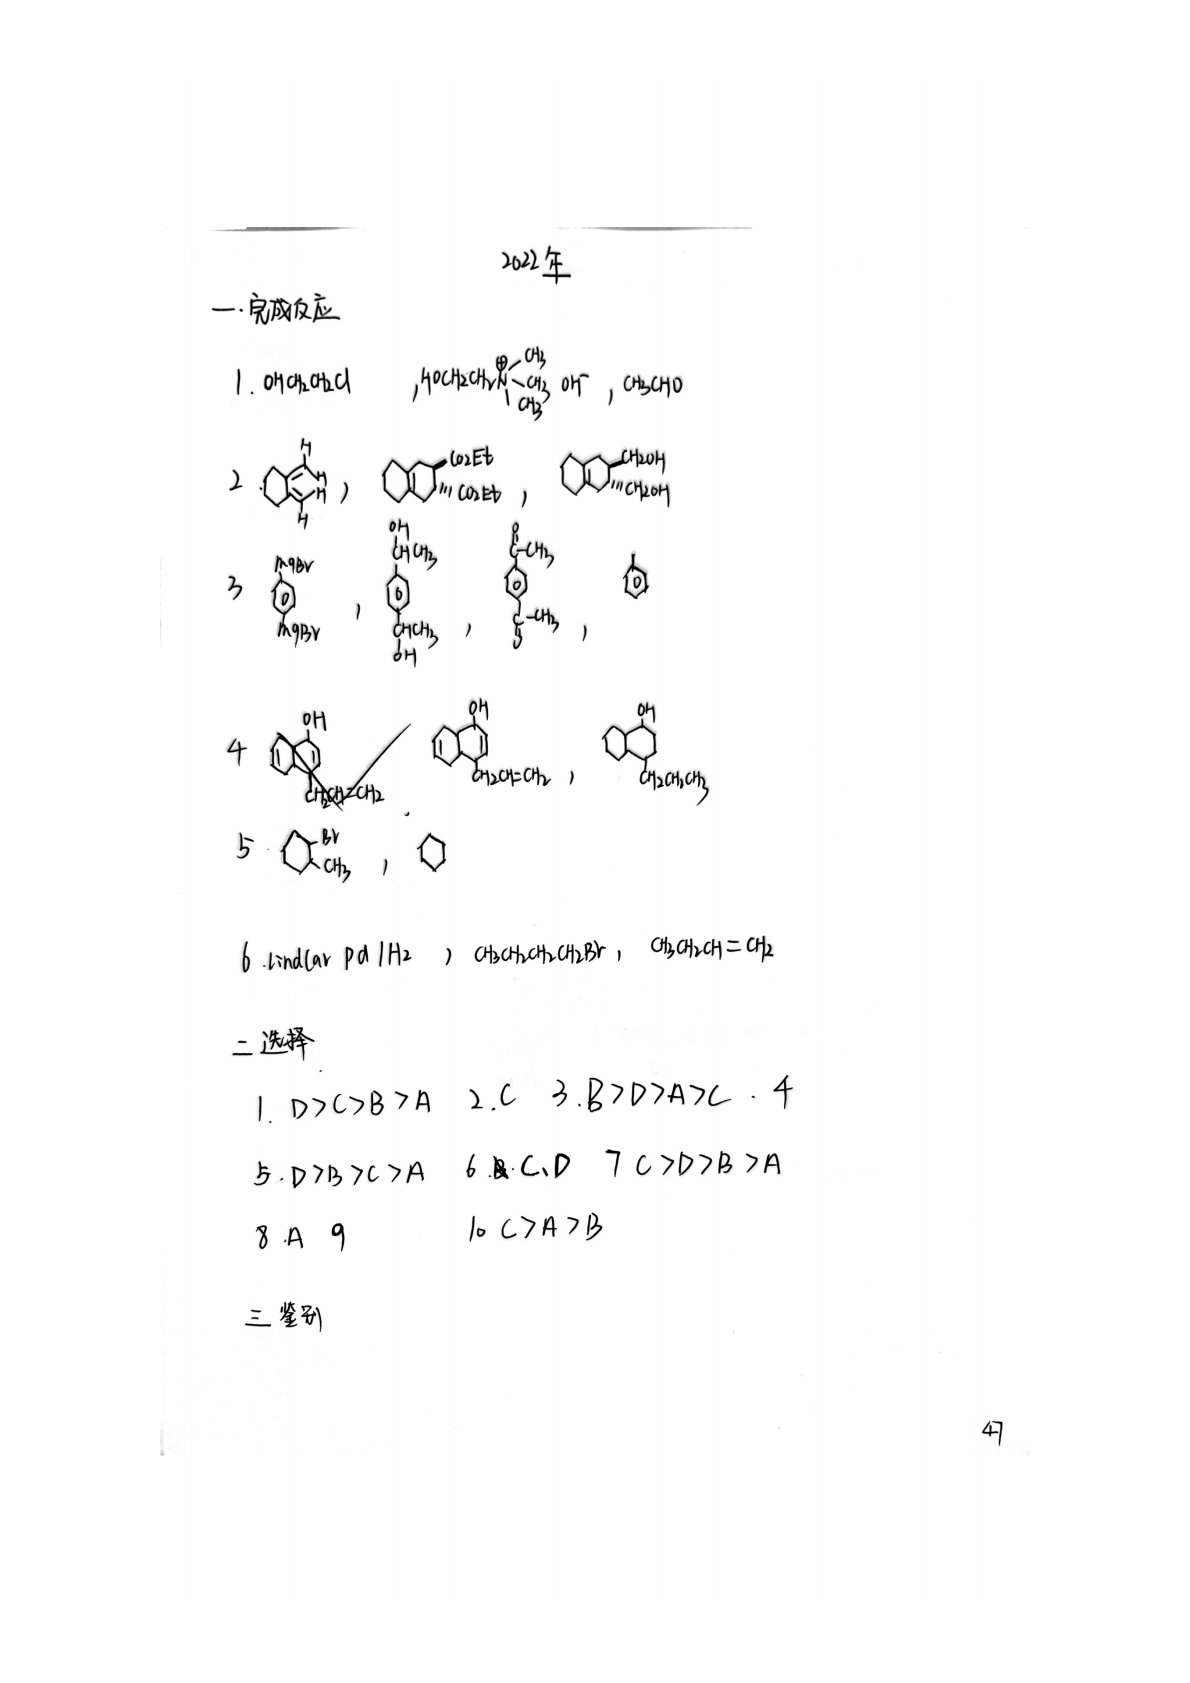 2022年
一.完成反应
1. OHCH2CH2Cl , HOCH2CH2N⊕ CH3 CH3 CH3 OH⁻ , CH3CHO
2. H H H H , CO2Et CO2Et , CH2OH CH2OH
3 MgBr MgBr , OH CHCH3 CHCH3 OH , O C-CH3 C-CH3 O ,
4 OH CH2CH=CH2 OH CH2CH=CH2 , OH CH2CH2CH3
5. Br CH3 ,
6. Lindlar pd/H2 , CH3CH2CH2CH2Br , CH3CH2CH=CH2
二 选择
1. D>C>B>A 2.C 3.B>D>A>C . 4
5.D>B>C>A 6. C、D 7 C>D>B>A
8.A 9 10 C>A>B
三 鉴别
47